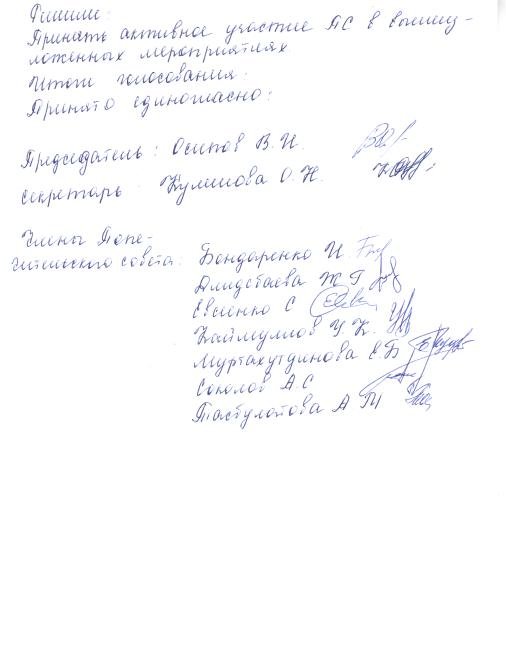 Решили:
Принять активное участие ПС в вышеиз-
ложенных мероприятиях
Итоги голосования:
Принято единогласно:
Председатель: Осипов В.И.
секретарь Кулешова О.Н.
Члены Попе-
чительского совета: Бондаренко И.
Ж.Г.
Евсиенко С
У.К.
Муртахутдинова Е.Б
Соколов А.С
Тасбулатова А М